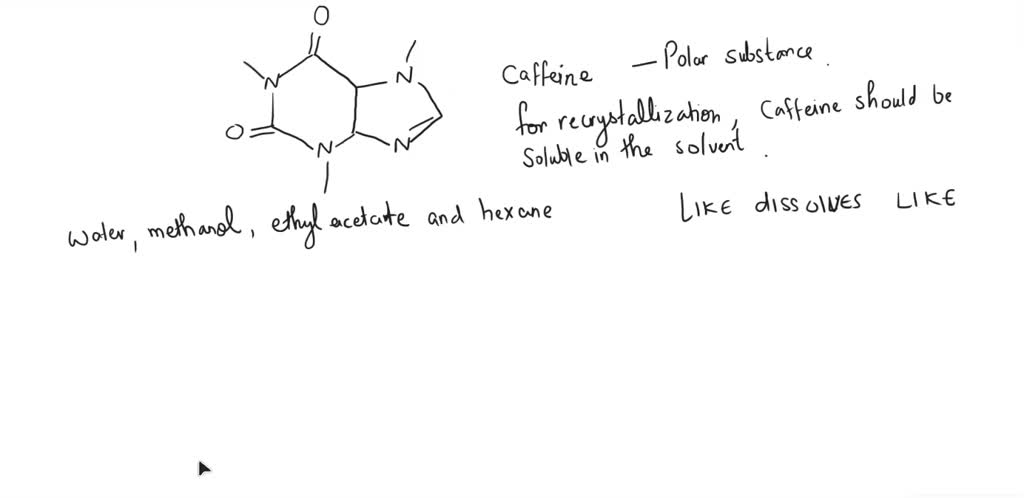 O
N
N
O
N
N
Caffeine — Polar substance.
for recrystallization, Caffeine should be
Soluble in the solvent.
water, methanol, ethyl acetate and hexane
LIKE dissolves LIKE